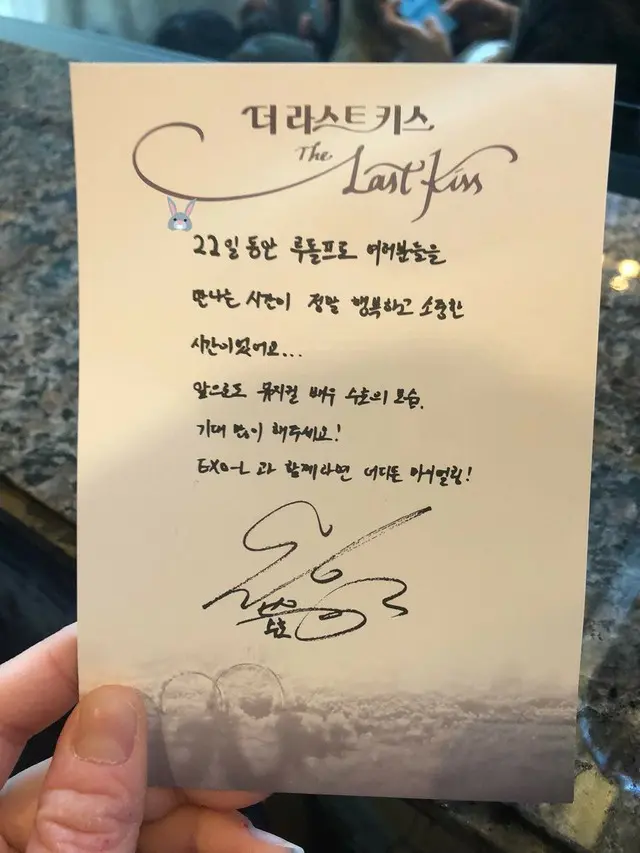 더 라스트 키스
The Last Kiss
22일 동안 루돌프로 여러분들을
만나는 시간이 정말 행복하고 소중한
시간이었어요...
앞으로도 뮤지컬 배우 수호의 모습,
기대 많이 해주세요!
EXO-L과 함께라면 어디든 마이얼링!
수호